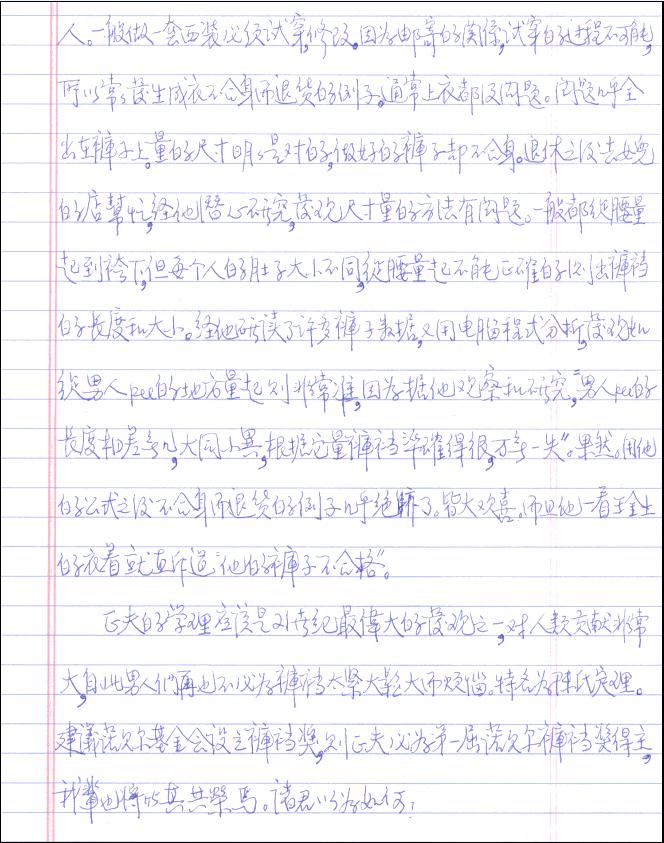 人。一般做一套西装必须试穿,修改。因为邮寄的関係,试穿的过程不可能,
所以常々發生成衣不合身而退货的例子。通常上衣都没问题。问题几乎全
出在褲子上。量的尺寸明々是对的,做好的褲子却不合身。退休之後去女兒
的店幫忙,经他潜心研究,發现尺寸量的方法有问题。一般都從腰量
起到袴下,但每个人的肚子大小不同,從腰量起不能正確的以出褲裆
的長度和大小。经他研读了许多褲子数据,又用电脑程式分析,發现如
從男人pee的地方量起则非常准,因为据他观察和研究,"男人pee的
長度相差無几,大同小異,根据它量褲裆準確得很,万無一失"。果然。用他
的公式之後不合身而退货的例子几乎绝跡了。皆大欢喜。而且他一看王金生
的衣着就直斥道"他的褲子不合格"。
正夫的学理应该是21世纪最偉大的發现之一,对人类贡献非常
大,自此男人们再也不必为褲裆太紧太鬆大而烦恼。特名为陳氏定理。
建議诺贝尔基金会设立褲裆獎,则正夫必为第一屆诺贝尔褲裆獎得主,
我輩也將与其共榮焉。諸君以为如何?